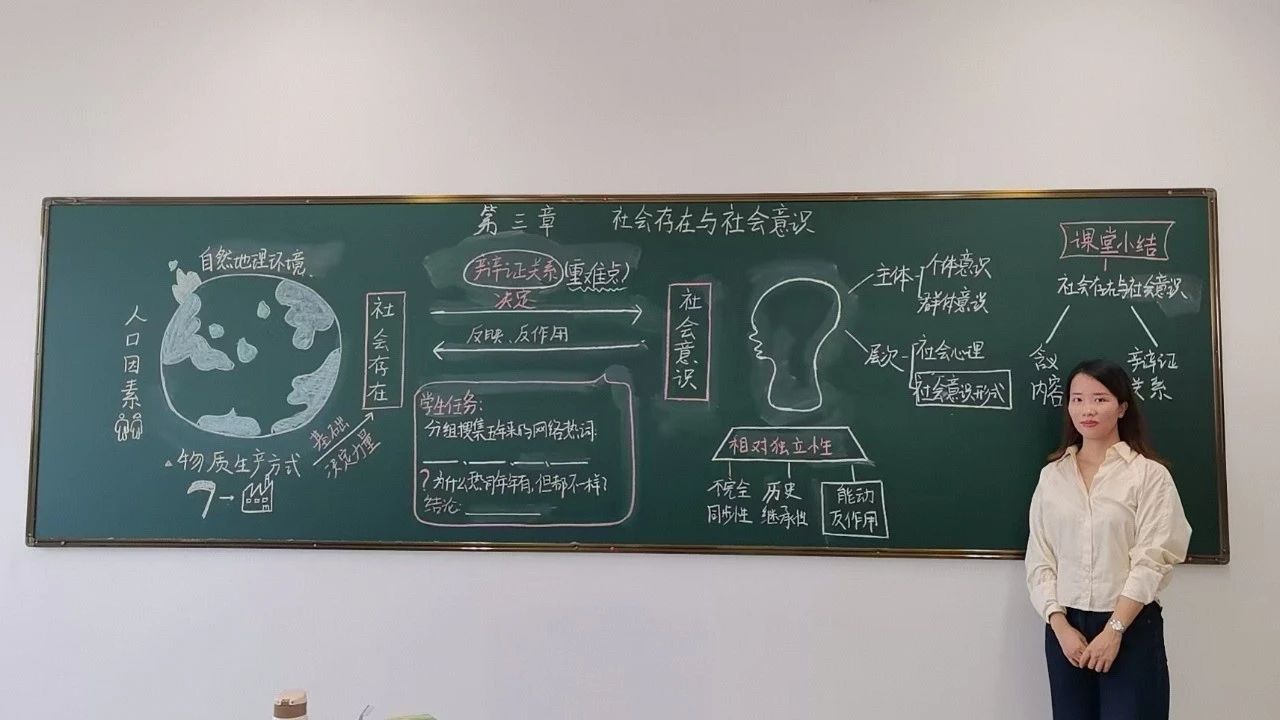 第三章 社会存在与社会意识
自然地理环境
人口因素
物质生产方式
基础
决定力量
社会存在
辩证关系(重难点)
决定
反映、反作用
学生任务:
分组搜集五年来的网络热词
?为什么热词年年有,但都不一样?
结论:
社会意识
主体
个体意识
群体意识
层次
社会心理
社会意识形式
相对独立性
不完全
同步性
历史
继承性
能动
反作用
课堂小结
社会存在与社会意识
含义
内容
辩证
关系